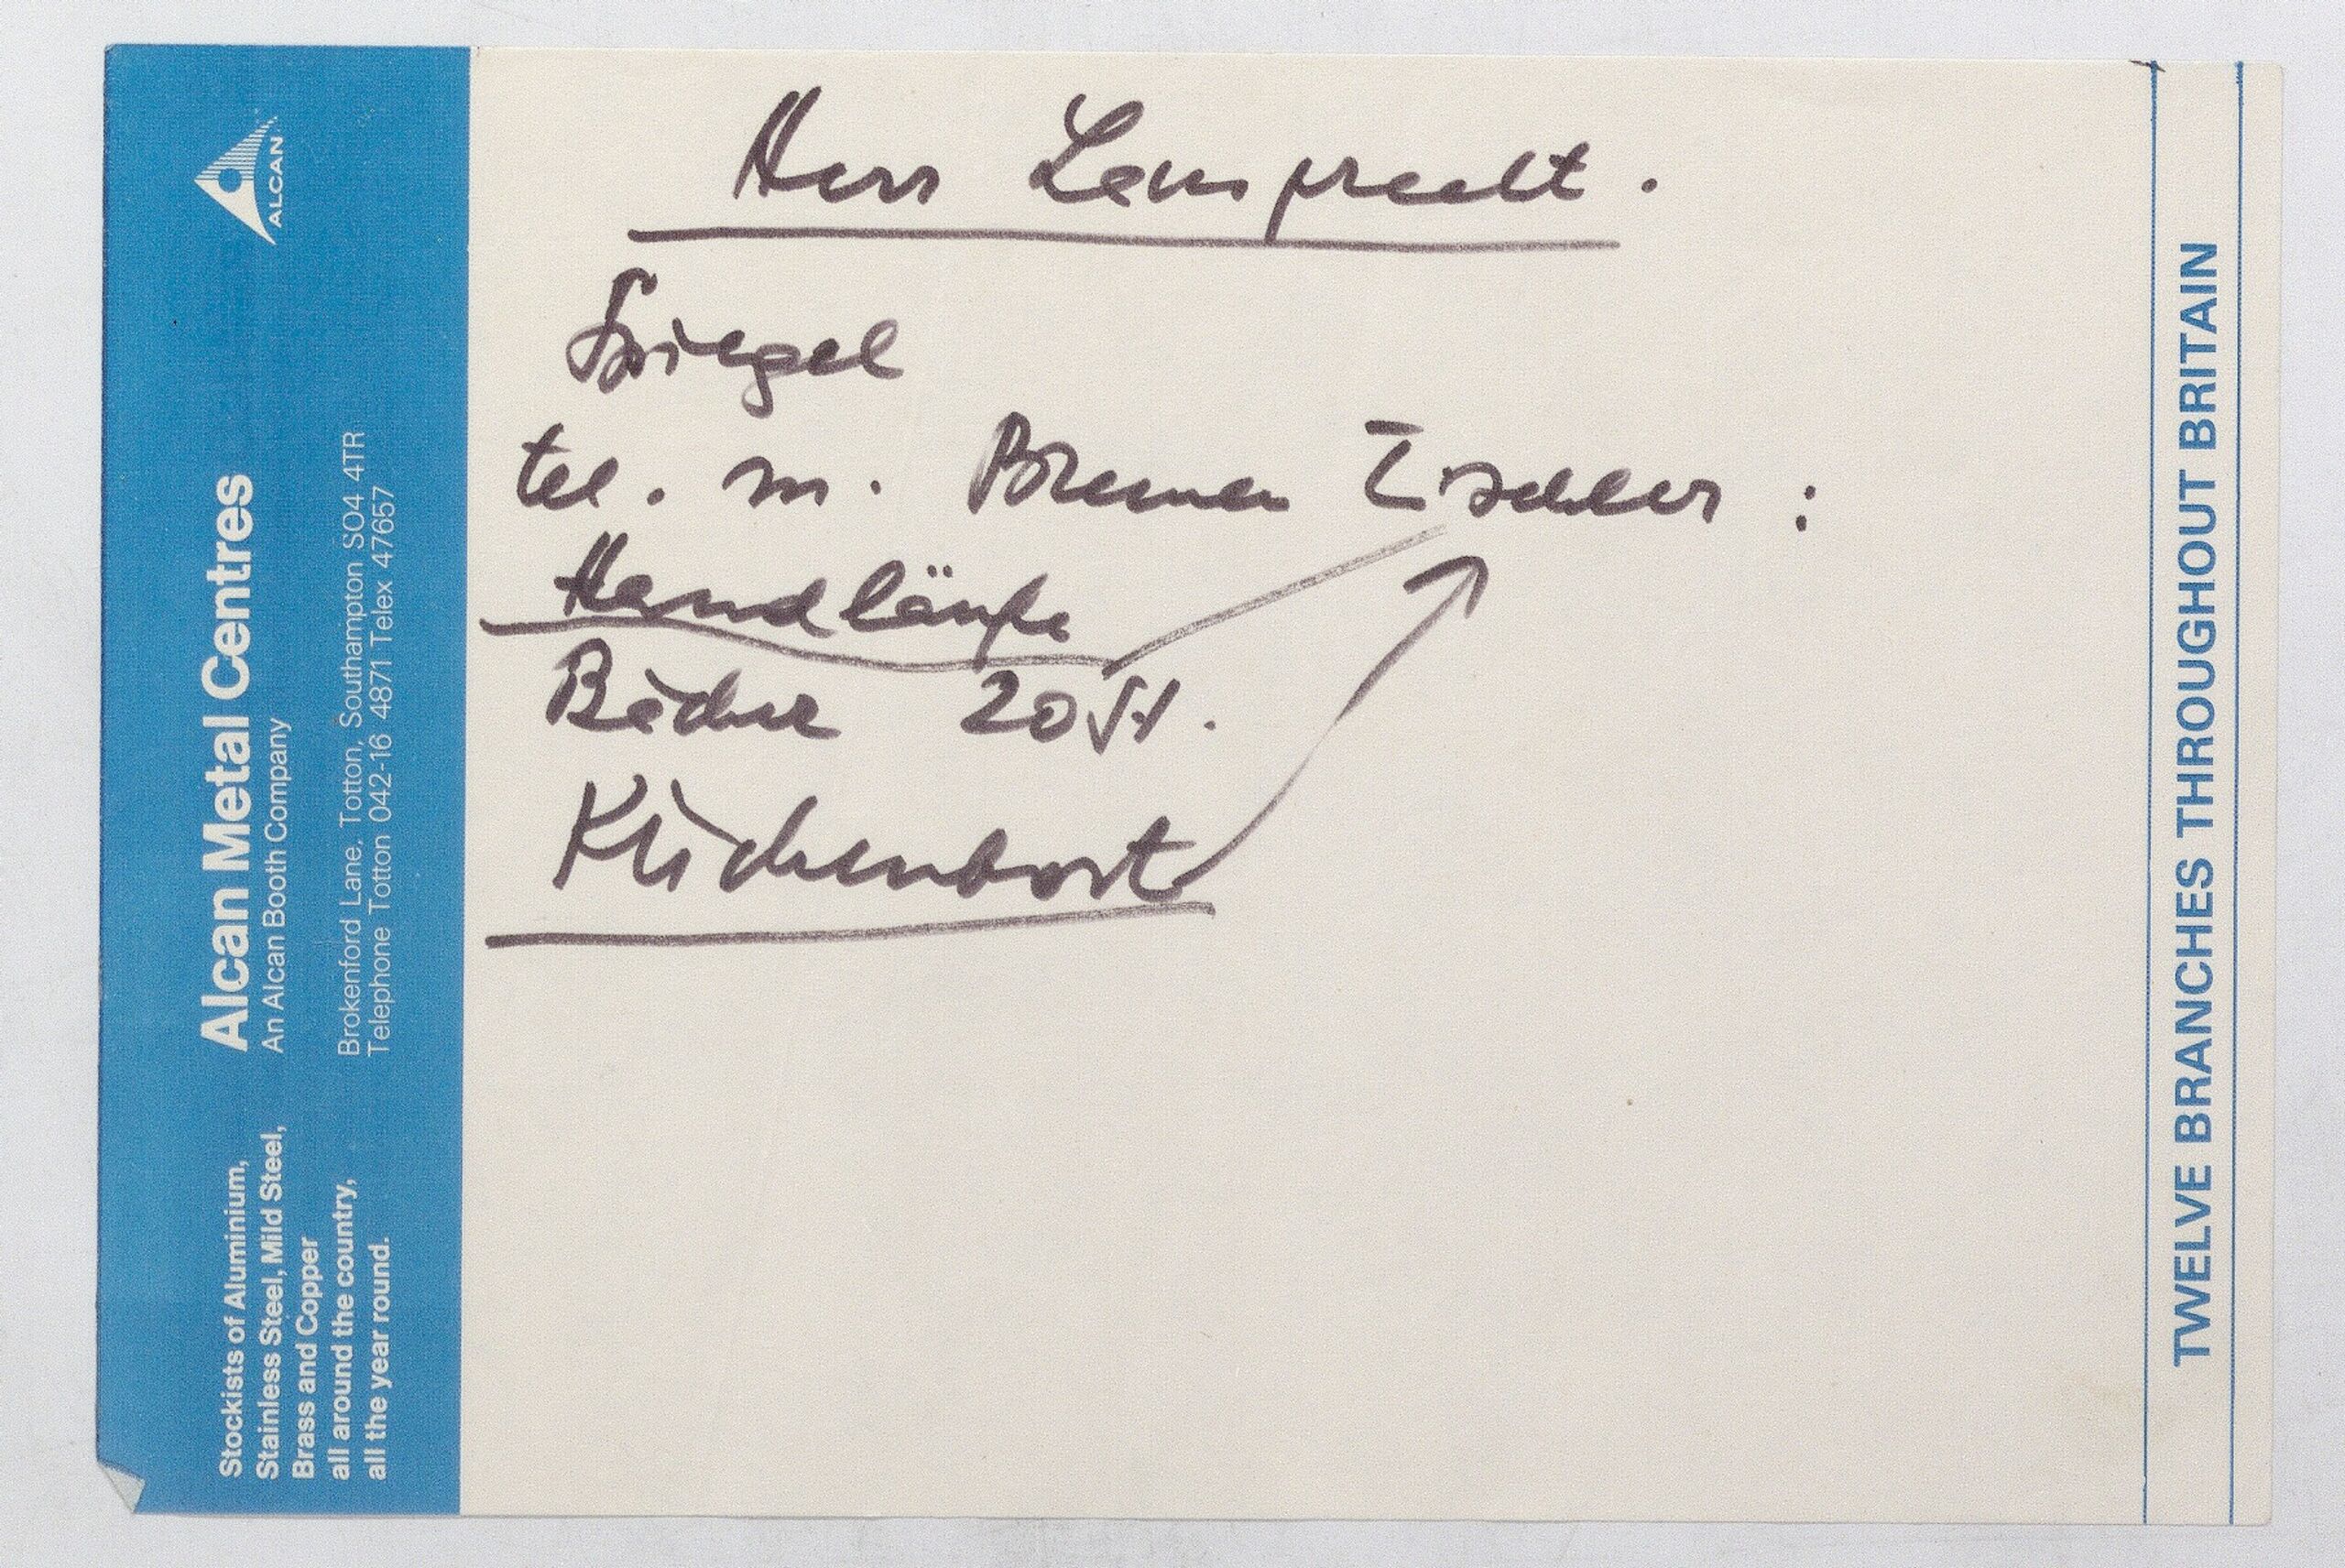 Herr Lamprecht.
Spiegel
tel. m. Bremen Tischler:
Handläufe
Bücher 20 St.
Küchenbort
ALCAN
Alcan Metal Centres
An Alcan Booth Company
Brokenford Lane, Totton, Southampton SO4 4TR
Telephone Totton 042-16 4871 Telex 47657
Stockists of Aluminium,
Stainless Steel, Mild Steel,
Brass and Copper
all around the country,
all the year round.
TWELVE BRANCHES THROUGHOUT BRITAIN